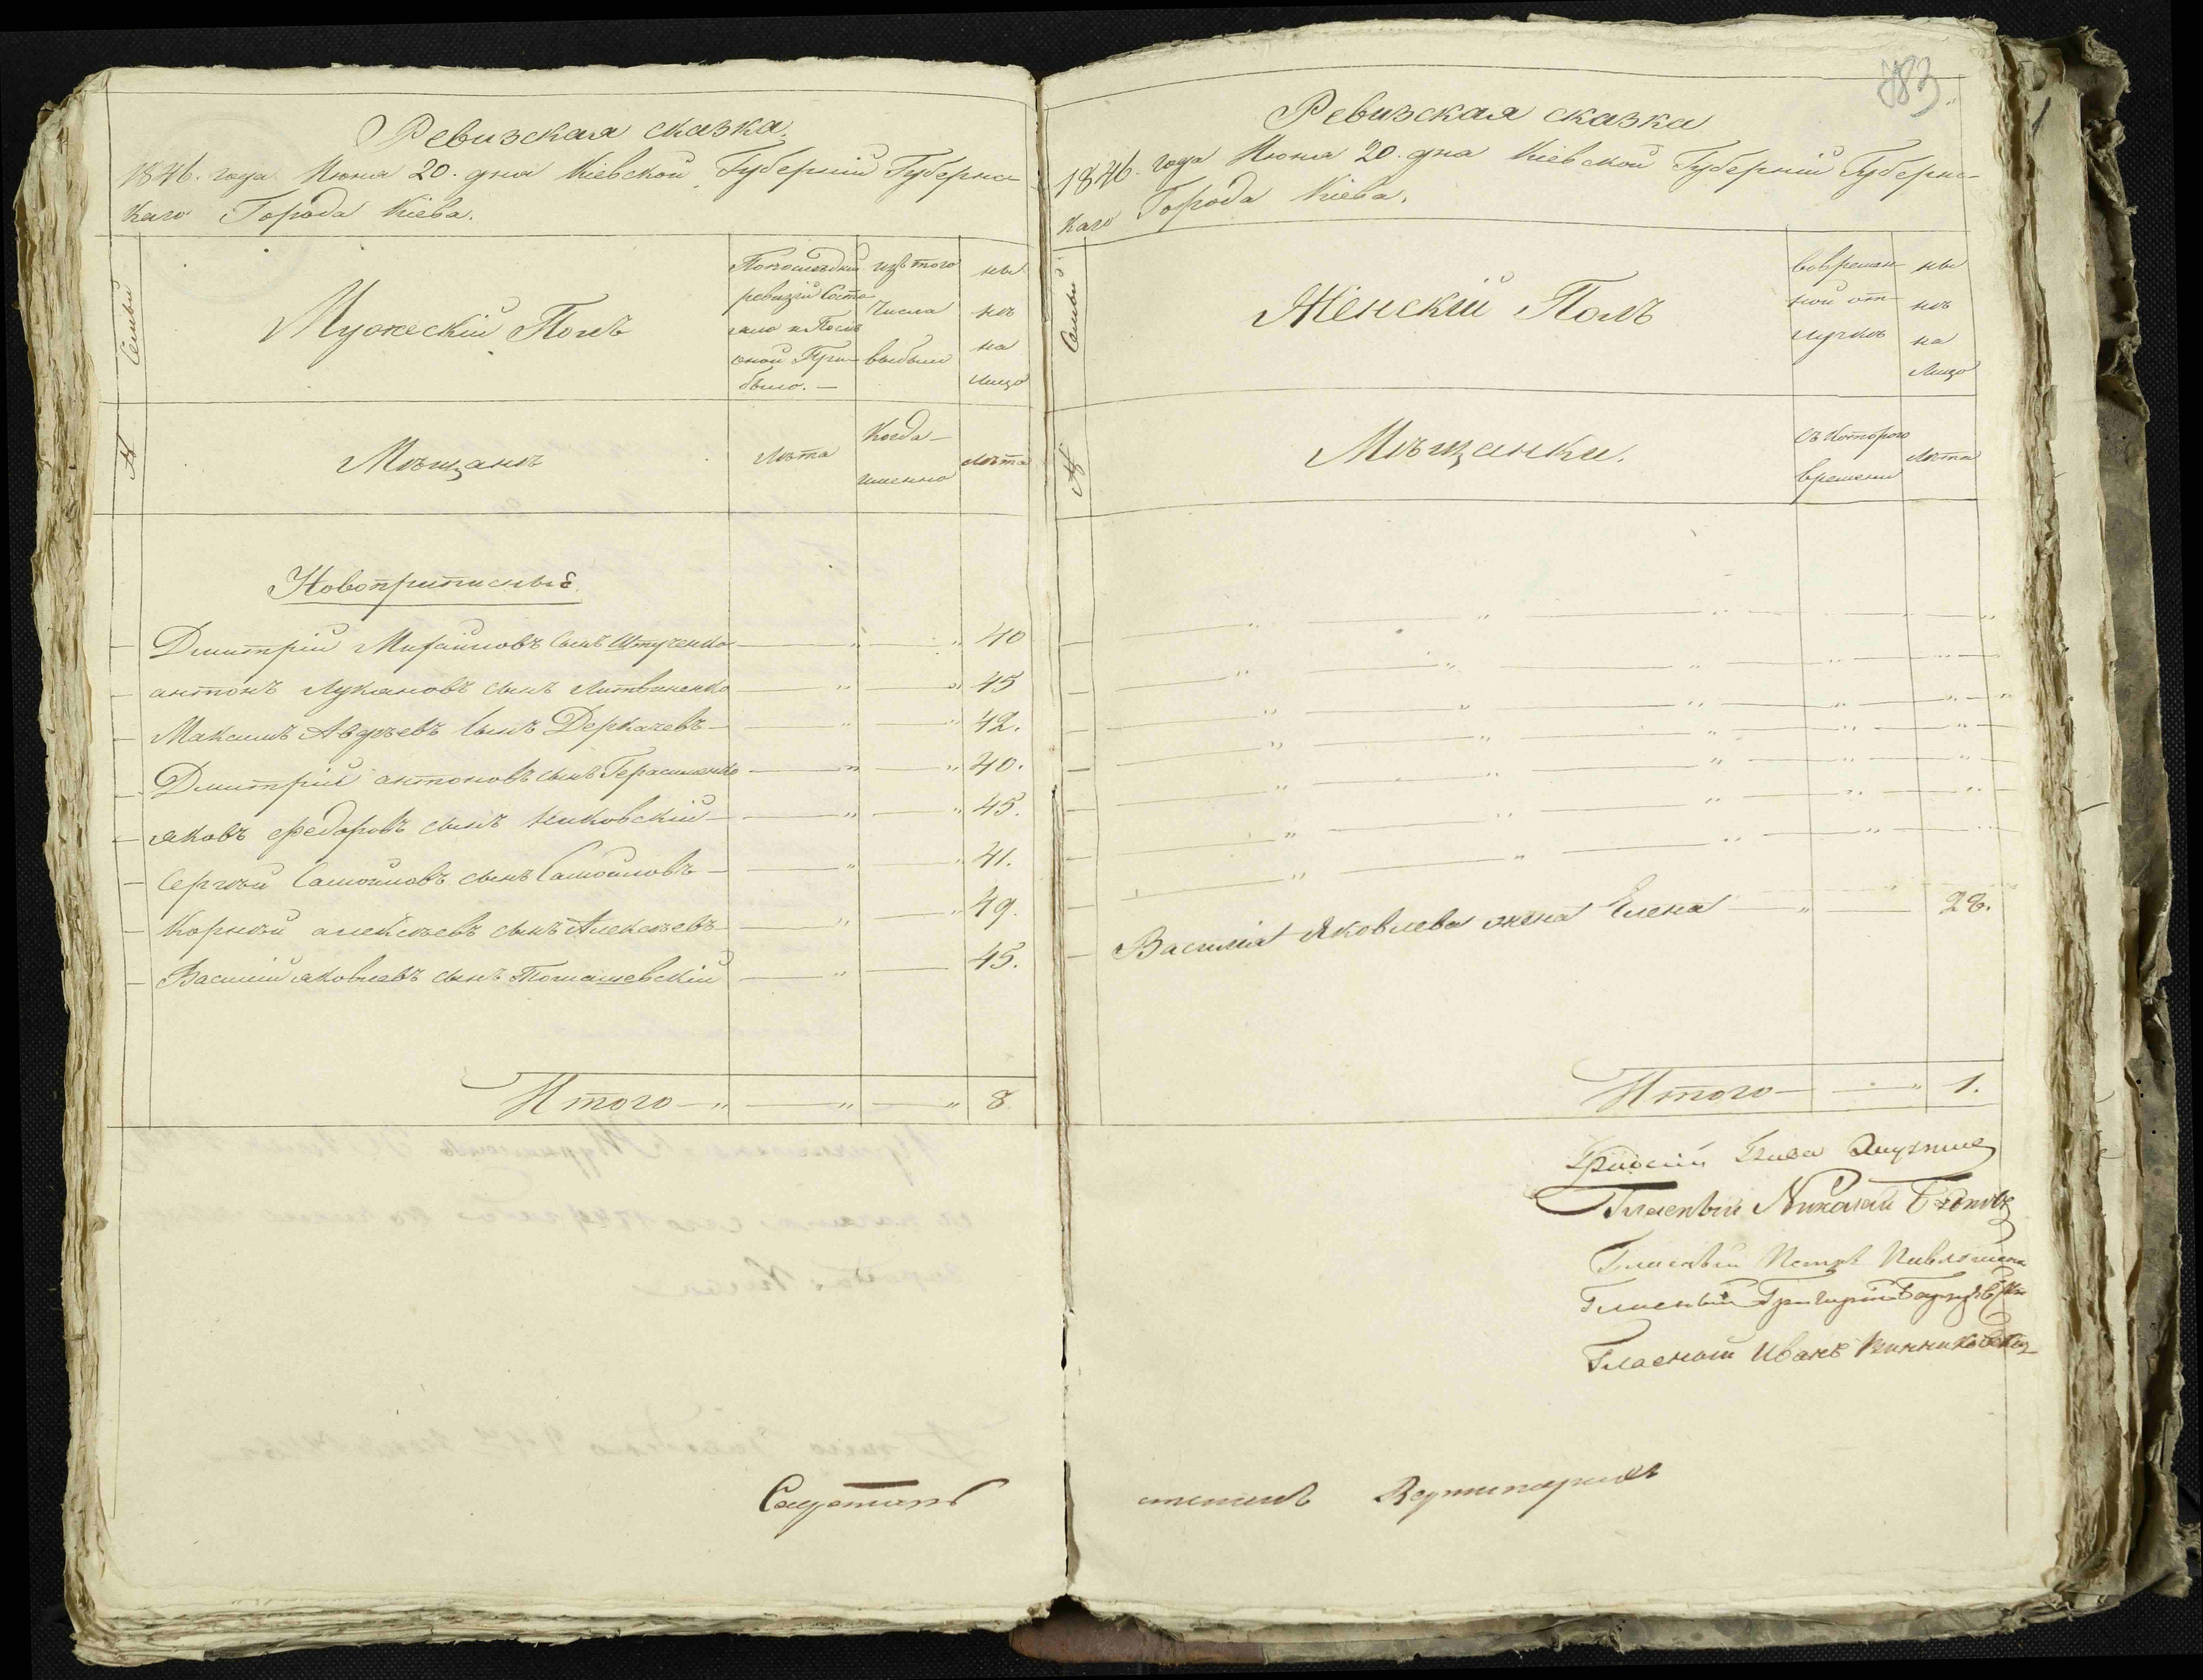 Ревизская сказка.
1846. года Июня 20. дня Кіевской Губерніи Губернс-
каго Города Кіева.
Семьи
Мужескій Полъ
Попоследней
ревизіи Состо
яло и После
оной При-
было. —
изъ того
Числа
выбыло
ны
нѣ
на
лицо
№
Мѣщанъ
Лѣта
Когда—
именно
Лѣта
Новоприписныѣ.
Дмитрій Михайловъ сынъ Штученко — „ — „ 40
антонъ Лукановъ сынъ Литвиненко — „ — „ 45
Максимъ Авдѣевъ сынъ Деркачевъ — „ — „ 42.
Дмитрій антоновъ сынъ Герасименко — „ — „ 40.
яковъ федоровъ сынъ — „ — „ 45.
Сергѣй Самойловъ сынъ Самойловъ — „ — „ 41.
Корнѣй алексѣевъ сынъ Алексѣевъ — „ — „ 49.
Василій яковлевъ сынъ Томашевскій — „ — 45.
Итого — „ — „ — „ 8.
783
Ревизская сказка
1846. года Июня 20. дня Кіевской Губерніи Губернс-
каго Города Кіева.
Семьи
Женскій Полъ
вовремян-
ной от-
лучкѣ
ны
нѣ
на
Лицо
№
Мѣщанки.
Съ Которого
времени
Лѣта
Василія Яковлева жена Елена — „ — 28.
Итого — — „ 1.
Градскій Глава
Гласный Николай
Гласный Петръ
Гласный Григорій
Гласный Иванъ Винниковскій